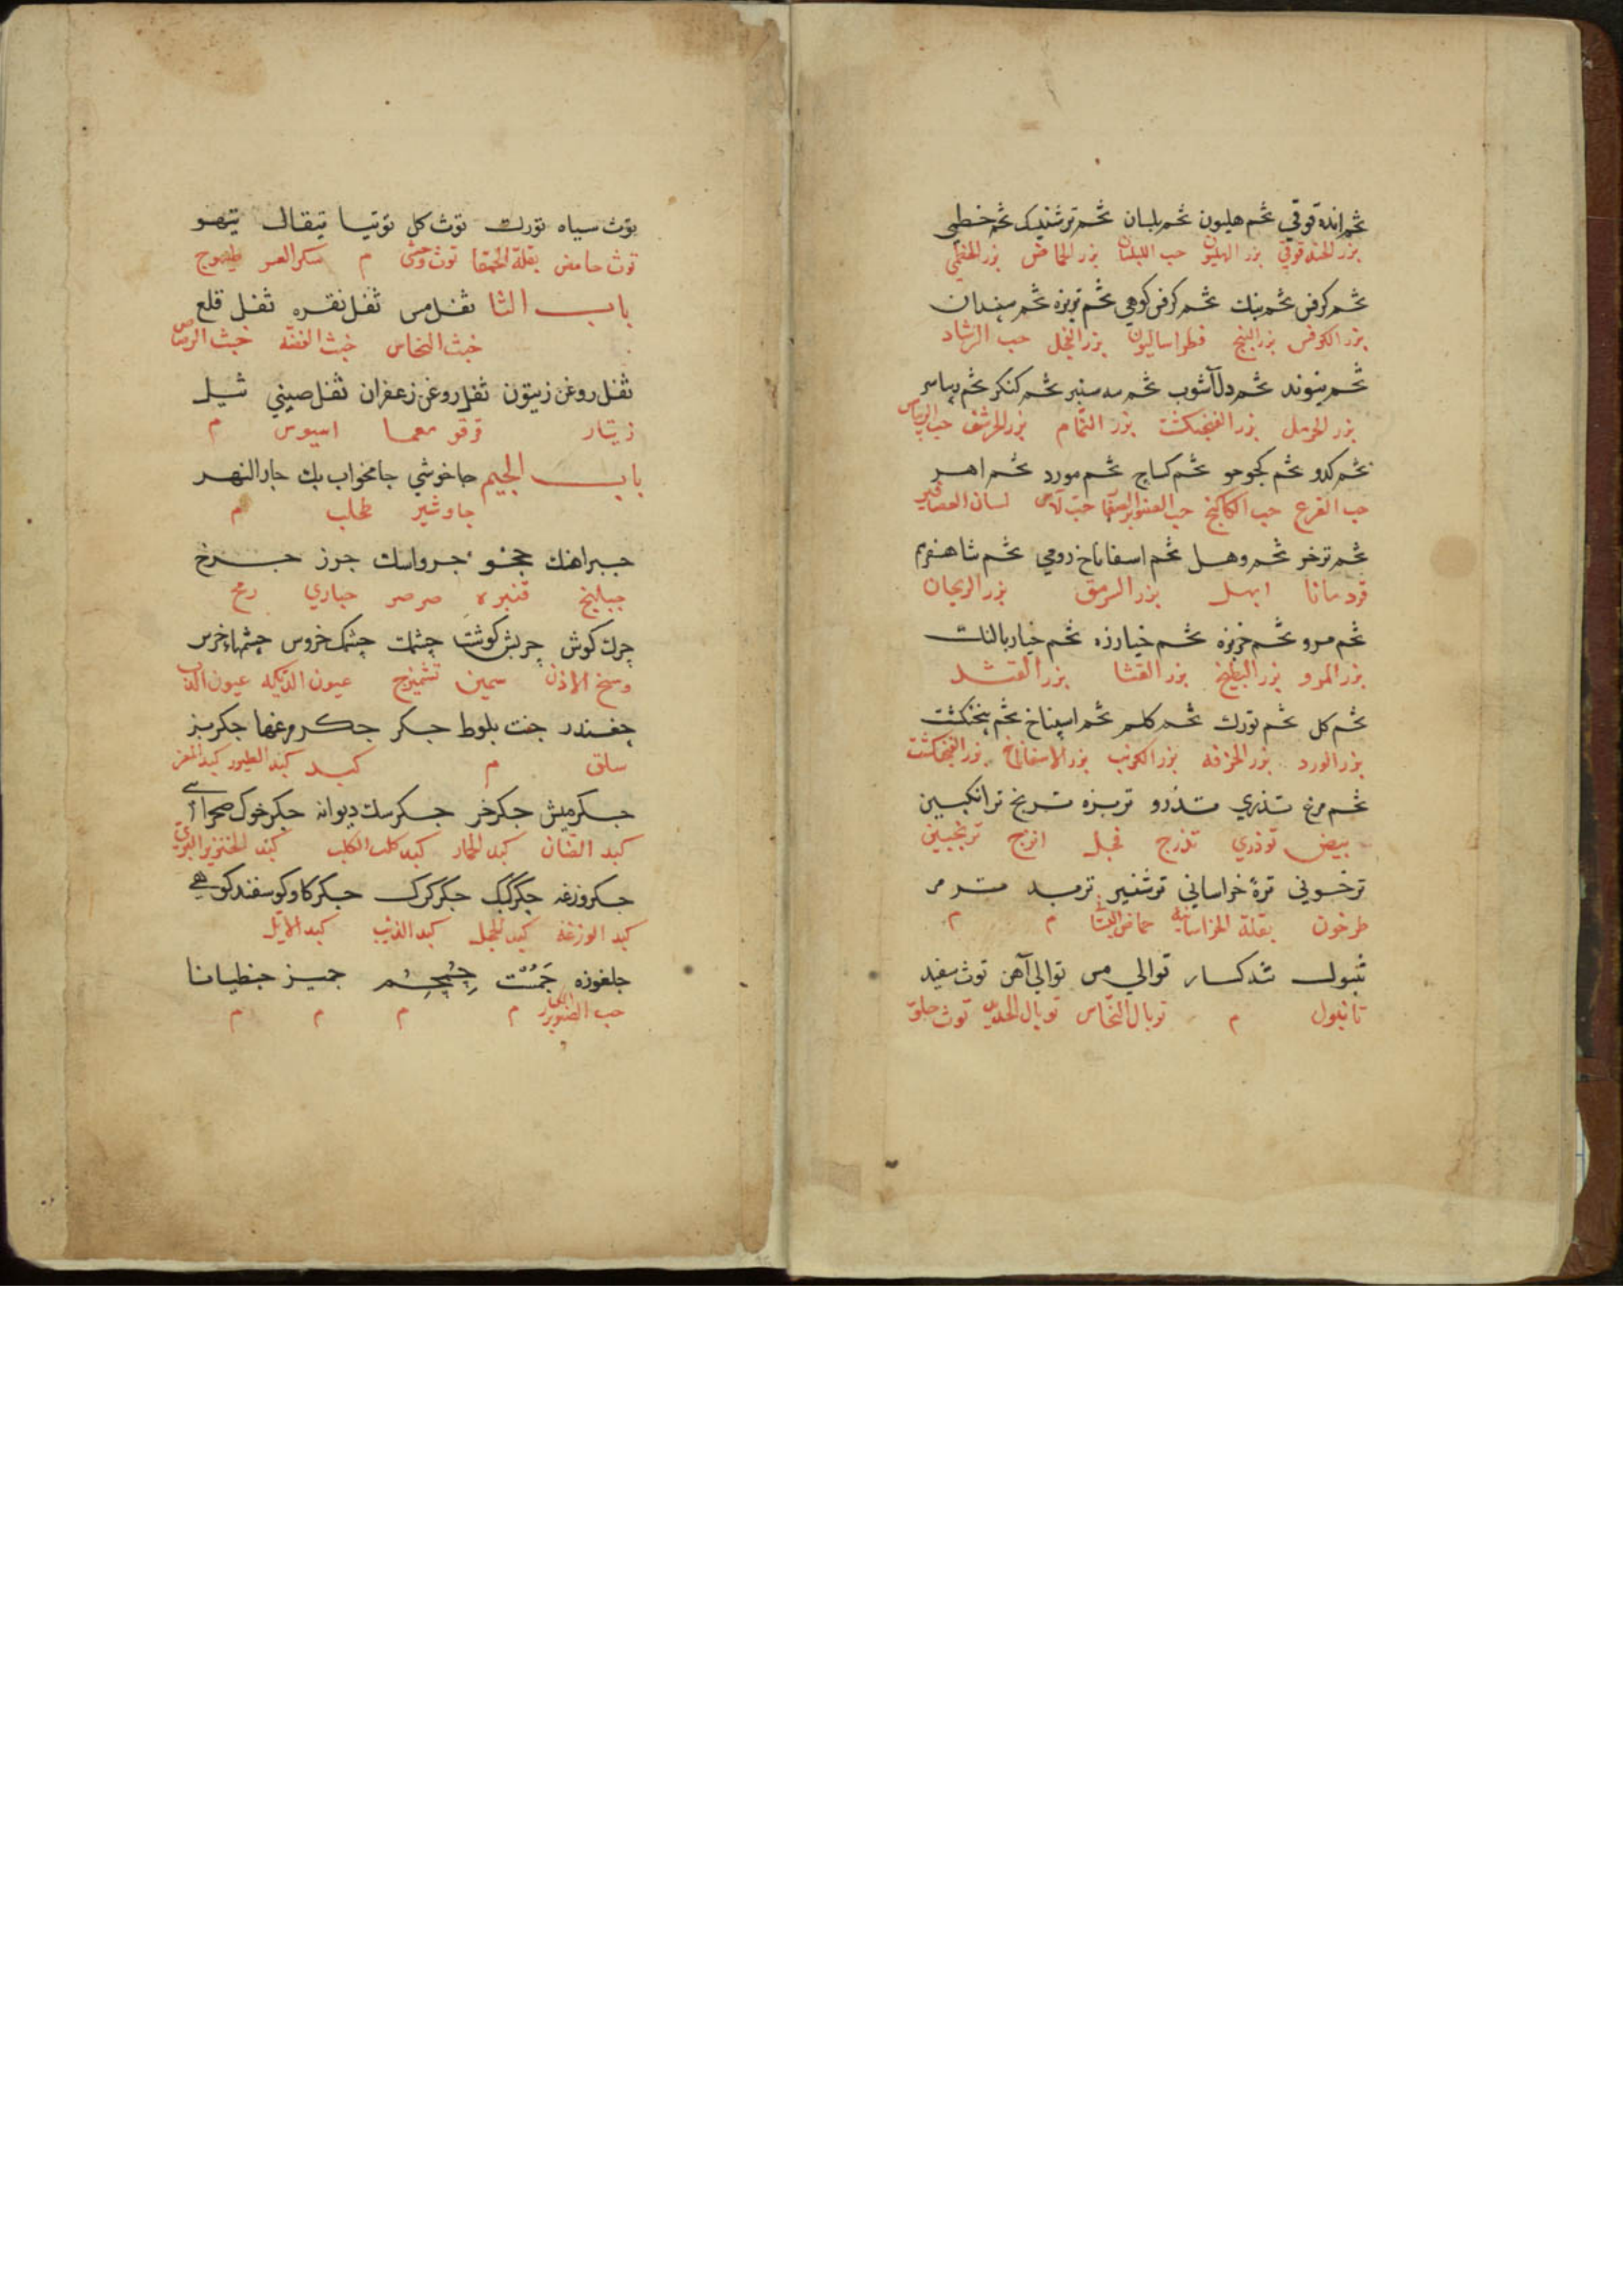 تخم انده قوقي تخم هليون تخم بلسان تخم ترشيندك تخم خطمي
بزر الحندقوقي بزر الهليون حب البلسان بزر الحماض بزر الخطمي
تخم كرفس تخم بنك تخم كرفس كوهي تخم تربزه تخم سپندان
بزر الكرفس بزر البنج فطراساليون بزر الفجل حب الرشاد
تخم دل آشوب تخم سه سنبر تخم كنكر
بزر الحرمل بزر الفنجنكشت بزر النمام بزر الحرشف
تخم كدو تخم كجوحو تخم كساج تخم مورد تخم اهر
حب القرع حب الكاكنج حب الصنوبر حب الآس لسان العصافير
تخم ترخر تخم وهل تخم اسفاناخ رومي تخم شاهسفرم
قردمانا ابهل بزر السرمق بزر الريحان
تخم مرو تخم خربزه تخم خيارزه تخم خيار بالنك
بزر المرو بزر البطيخ بزر القثا بزر القثد
تخم كل تخم تورك تخم كلم تخم اسپناخ تخم پنجنكشت
بزر الورد بزر الخرفه بزر الكرنب بزر الاسفاناخ بزر الفنجنكشت
تخم مرغ تذري تذرو تربزه ترنج ترانكبين
بيض توذري تذرج فجل اترج ترنجبين
ترخوني تره خراساني ترشفير تربد ترمر
طرخون بقلة الخراسانيه حماض م م
تنبول تدكسار توالي مس توالي آهن توث سفيد
تانبول م توبال النحاس توبال الحديد توث حلو
توث سياه تورك توث كل توتيا تيقال تيهو
توث حامض بقلة الحمقا توث وحشي م سكر العشر طيهوج
باب الثا ثفل مس ثفل نقره ثفل قلع
خبث النحاس خبث الفضه خبث الرصاص
ثفل روغن زيتون ثفل روغن زعفران ثفل صيني ثيل
قرقومعما اسيوس م
باب الجيم جاخوشي جامخواب بك جار النهر
جاوشير طحلب م
جبراهنك ججو جرواسك جرز جرخ
جبلهنج قنبره صرصر حباري رمح
چرك كوش چربش كوشت چشمك چشمك خروس چشمهاء خرس
وسخ الاذن سمين تشميزج عيون الديكه عيون الدب
چغندر جفت بلوط جكر جكر مرغها جكر بز
سلق م كبد كبد الطيور كبد المعز
جكر ميش جكر خر جكر سك ديوانه جكر خوك صحرائي
كبد الضان كبد الحمار كبد كلب الكلب كبد الخنزير البري
جكر وزغه جكر كبك جكر كرك جكر كاو كوسفند كوهي
كبد الوزغة كبد الحجل كبد الذئب كبد الايل
جلغوزه جمست چمچم جميز جنطيانا
حب الصنوبر الكبار م م م م